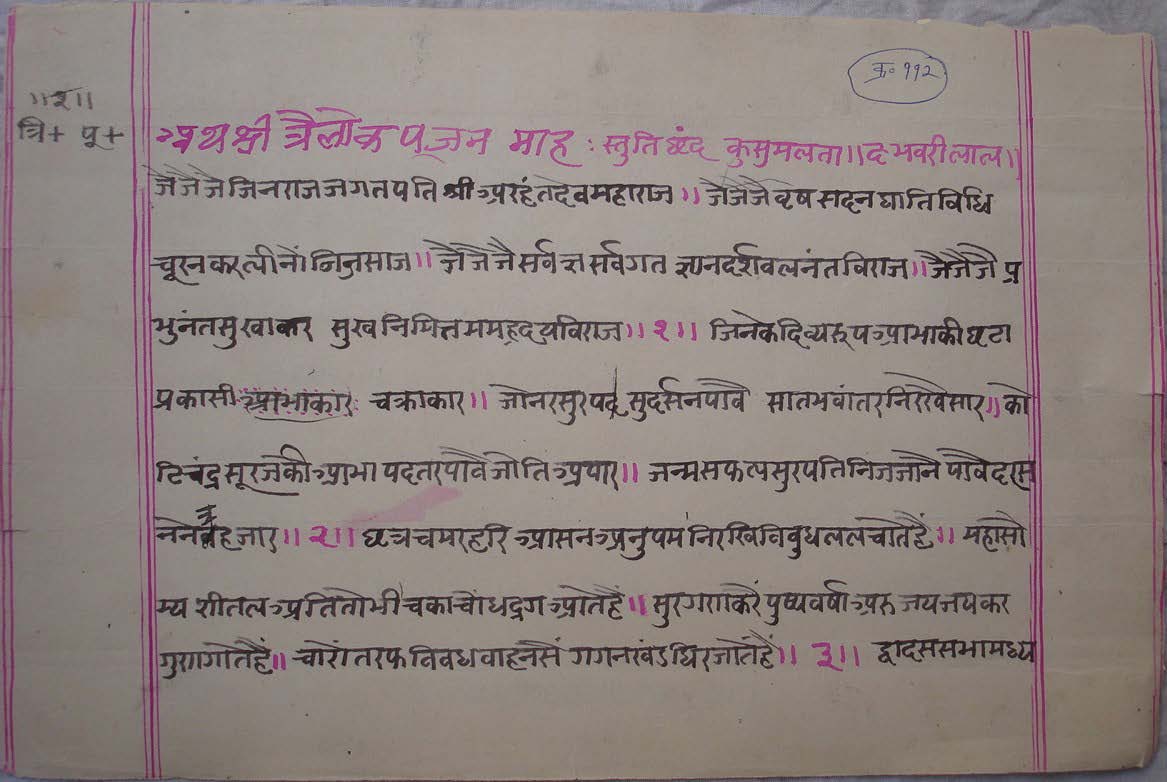 क्र॰ ११२
॥२॥
त्रि+ पू+
अथ श्री त्रैलोक पूजन माह : स्तुति छंद कुसुमलता॥ द भवरीलाल॥
जैजैजैजिनराजजगतपति श्री अरहंतदेवमहाराज॥ जैजैजैवृषसदनघातिविधि
चूरनकरलीनोंनिजसाज॥ जैजैजैसर्वज्ञसर्वगत ज्ञानदर्शवलनंतविराज॥जैजैजैप्र
भुनंतसुखाकर सुखनिमित्तममहृदयविराज॥१॥ जिनकेदिव्यरूपआभाकीछटा
प्रकासी चक्राकार॥ जोनरसुरपद सुदर्सनपावै सातभवांतरनिरखैसार॥को
टिचंद्रसूरजकीआभा पदतरपावैजोतिअपार॥ जन्मसफलसुरपतिनिजजानै पावैदरस
ननेत्रहजार॥२॥ छत्रचमरहरिआसनअनुपम निरखिविवुधललचातेहैं॥ महासो
म्य शीतलअतितोभी चकाचोधद्रगआतेहैं॥ सुरगणकरैंपुष्पवर्षाअरु जयजयकर
गुणगातेहैं॥ चारोंतरफविवधवाहनसैं गगनखंडघिरजातेहैं॥३॥ द्वादससभामध्य